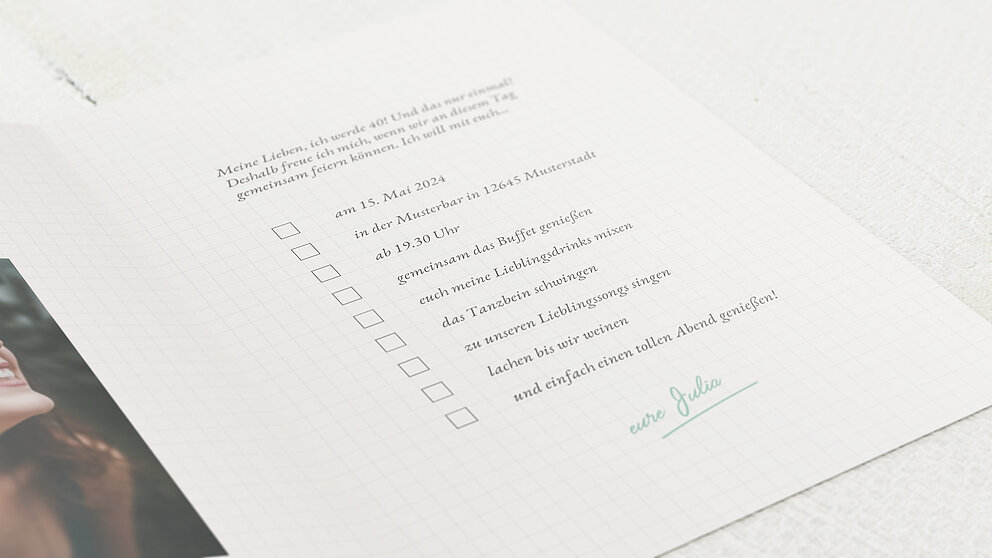 Meine Lieben, ich werde 40! Und das nur einmal!
Deshalb freue ich mich, wenn wir an diesem Tag
gemeinsam feiern können. Ich will mit euch...
am 15. Mai 2024
in der Musterbar in 12645 Musterstadt
ab 19.30 Uhr
gemeinsam das Buffet genießen
euch meine Lieblingsdrinks mixen
das Tanzbein schwingen
zu unseren Lieblingssongs singen
lachen bis wir weinen
und einfach einen tollen Abend genießen!
eure Julia